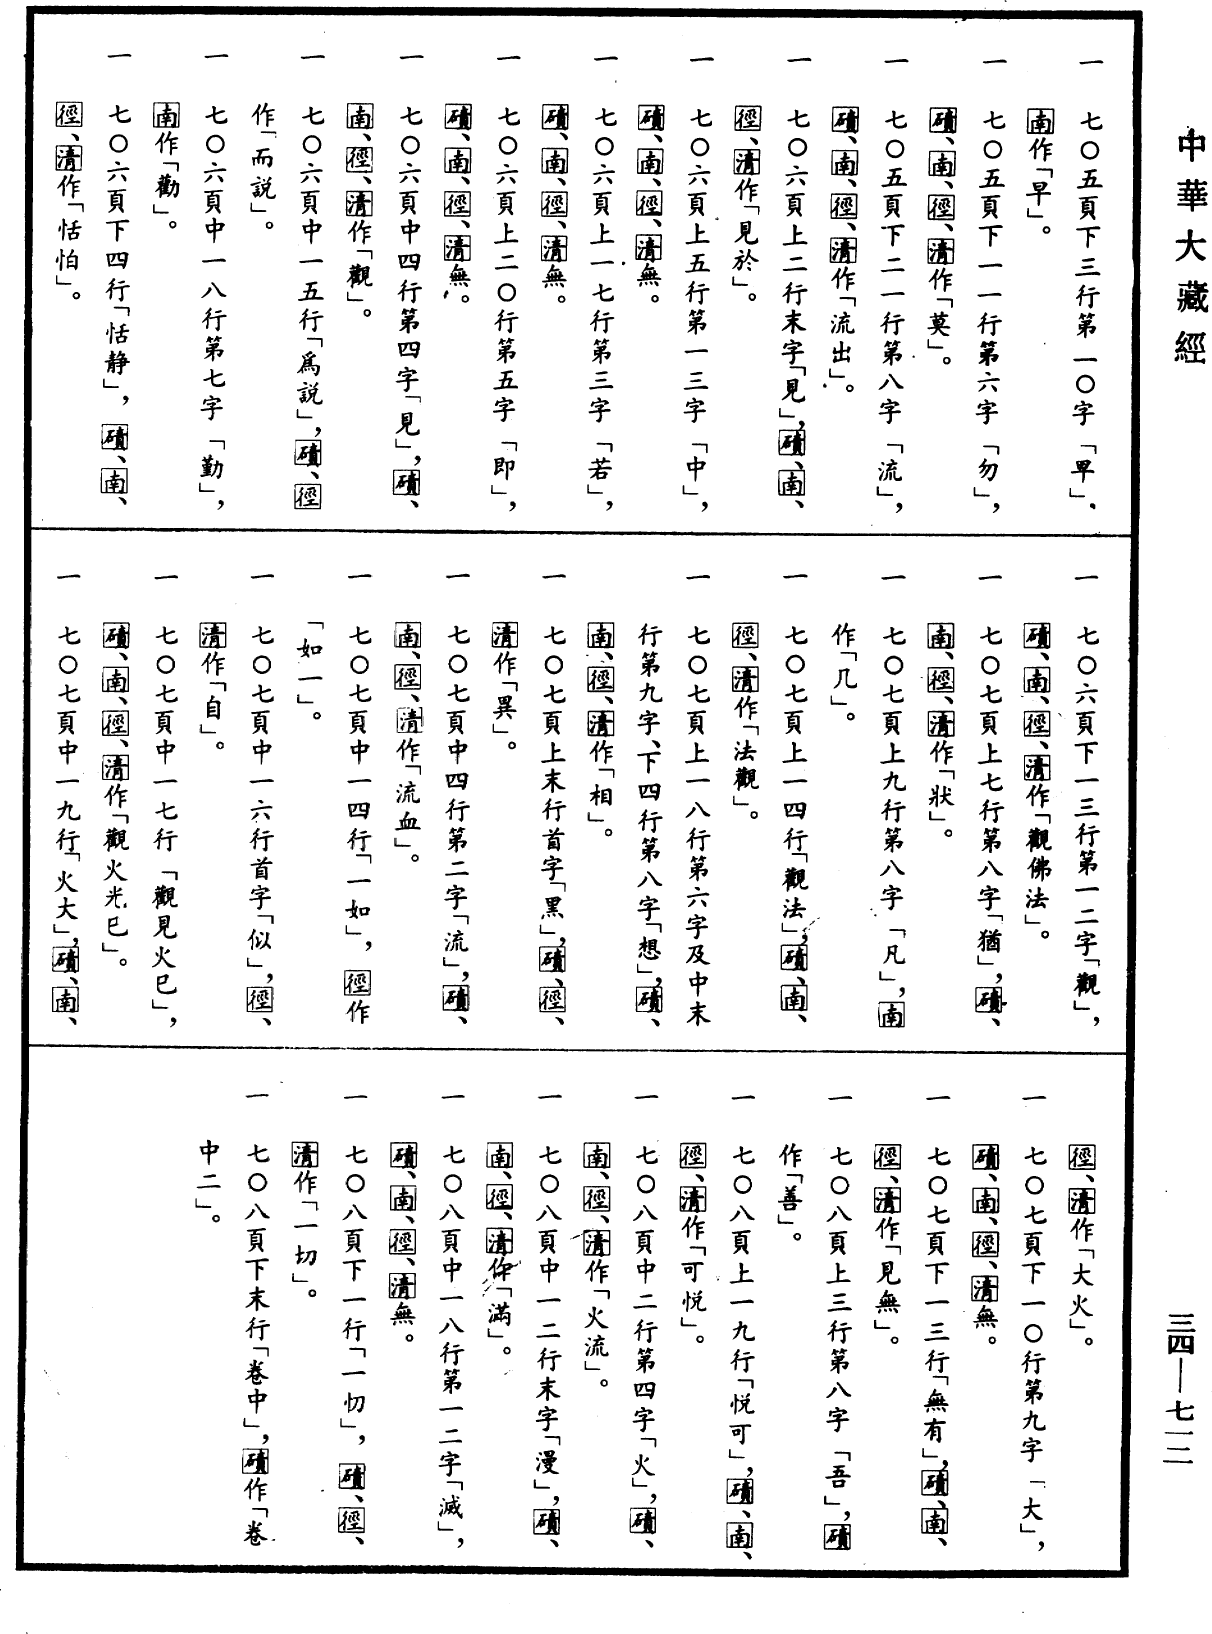 中華大藏經
一 七〇五頁下三行第一〇字「早」，
南作「早」。
一 七〇五頁下一一行第六字「勿」，
磧、南、徑、清作「莫」。
一 七〇五頁下二一行第八字「流」，
磧、南、徑、清作「流出」。
一 七〇六頁上二行末字「見」，磧、南、
徑、清作「見於」。
一 七〇六頁上五行第一三字「中」，
磧、南、徑、清無。
一 七〇六頁上一七行第三字「若」，
磧、南、徑、清無。
一 七〇六頁上二〇行第五字「即」，
磧、南、徑、清無。
一 七〇六頁中四行第四字「見」，磧、
南、徑、清作「觀」。
一 七〇六頁中一五行「爲説」，磧、徑
作「而説」。
一 七〇六頁中一八行第七字「勤」，
南作「勸」。
一 七〇六頁下四行「恬静」，磧、南、
徑、清作「恬怕」。
一 七〇六頁下一三行第一二字「觀」，
磧、南、徑、清作「觀佛法」。
一 七〇七頁上七行第八字「猶」，磧、
南、徑、清作「狀」。
一 七〇七頁上九行第八字「凡」，南
作「几」。
一 七〇七頁上一四行「觀法」，磧、南、
徑、清作「法觀」。
一 七〇七頁上一八行第六字及中末
行第九字、下四行第八字「想」，磧、
南、徑、清作「相」。
一 七〇七頁上末行首字「黑」，磧、徑、
清作「異」。
一 七〇七頁中四行第二字「流」，磧、
南、徑、清作「流血」。
一 七〇七頁中一四行「一如」，徑作
「如一」。
一 七〇七頁中一六行首字「似」，徑、
清作「自」。
一 七〇七頁中一七行「觀見火巳」，
磧、南、徑、清作「觀火光巳」。
一 七〇七頁中一九行「火大」，磧、南、
徑、清作「大火」。
一 七〇七頁下一〇行第九字「大」，
磧、南、徑、清無。
一 七〇七頁下一三行「無有」，磧、南、
徑、清作「見無」。
一 七〇八頁上三行第八字「吾」，磧
作「善」。
一 七〇八頁上一九行「悦可」，磧、南、
徑、清作「可悦」。
一 七〇八頁中二行第四字「火」，磧、
南、徑、清作「火流」。
一 七〇八頁中一二行末字「漫」，磧、
南、徑、清作「滿」。
一 七〇八頁中一八行第一二字「滅」，
磧、南、徑、清無。
一 七〇八頁下一行「一忉」，磧、徑、
清作「一切」。
一 七〇八頁下末行「卷中」，磧作「卷
中二」。
三四—七一二